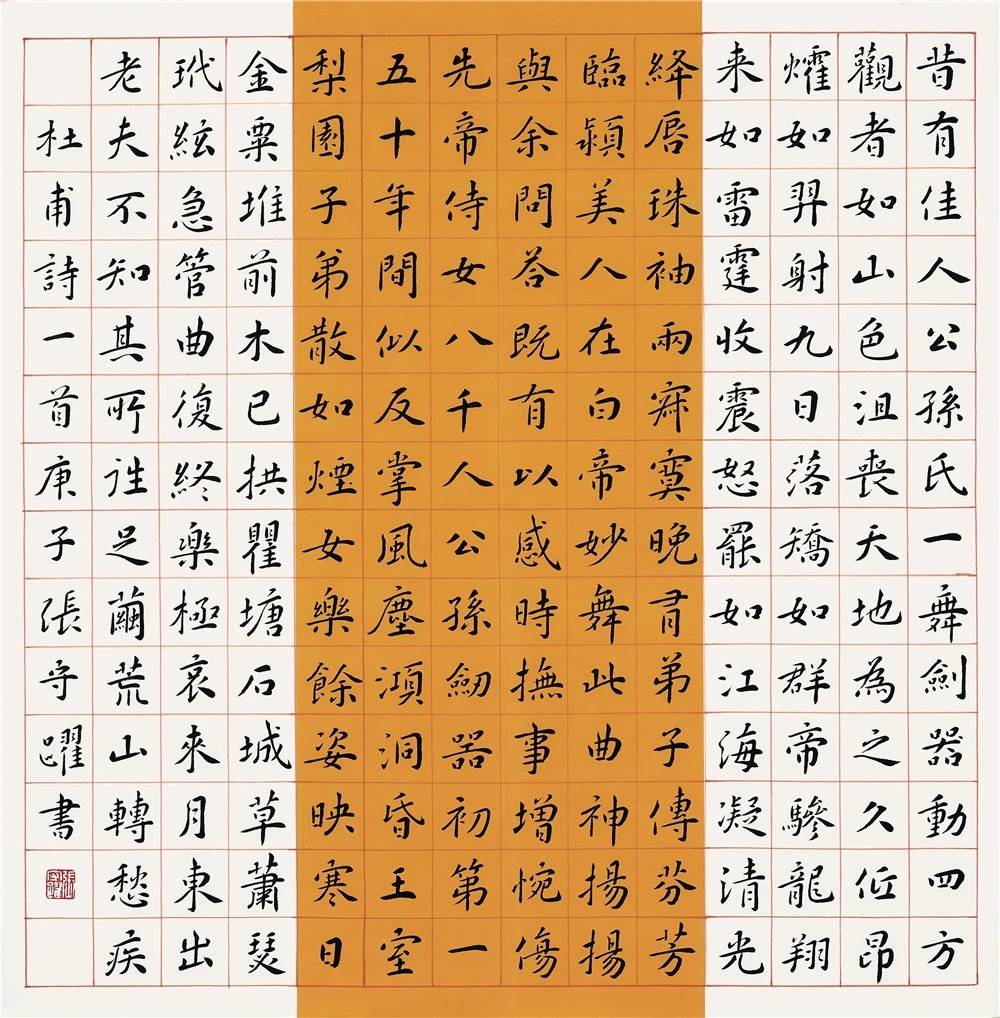 昔有佳人公孫氏一舞劍器動四方
觀者如山色沮喪天地為之久低昂
燿如羿射九日落矯如群帝驂龍翔
来如雷霆收震怒罷如江海凝清光
絳唇珠袖兩寂寞晚有弟子傳芬芳
臨潁美人在白帝妙舞此曲神揚揚
與余問答既有以感時撫事增惋傷
先帝侍女八千人公孫劒器初第一
五十年間似反掌風塵澒洞昏王室
梨園子弟散如煙女樂餘姿映寒日
金粟堆前木已拱瞿塘石城草蕭瑟
玳絃急管曲復終樂極哀來月東出
老夫不知其所往足繭荒山轉愁疾
杜甫詩一首庚子張守躍書
張守躍